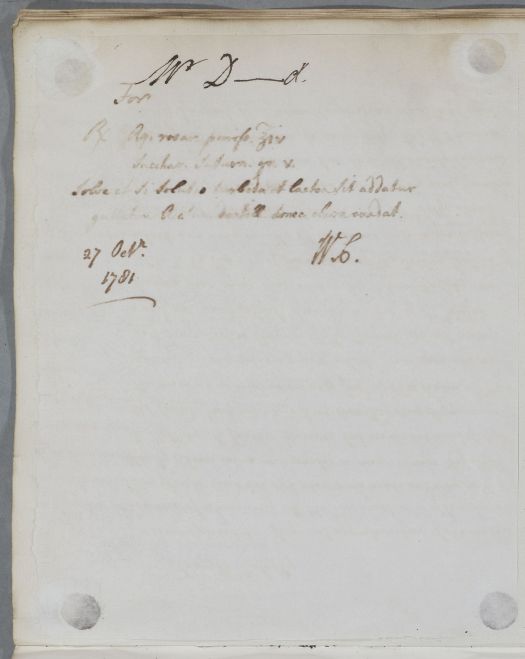 Mr D——d.
For
Rx Aq. rosar. ℥iv
Sacchar. Saturn. gr. v.
Solve et si Solutio turbida et lactea sit addatur
donec clara evadat.
27 Octr. W.C.
1781